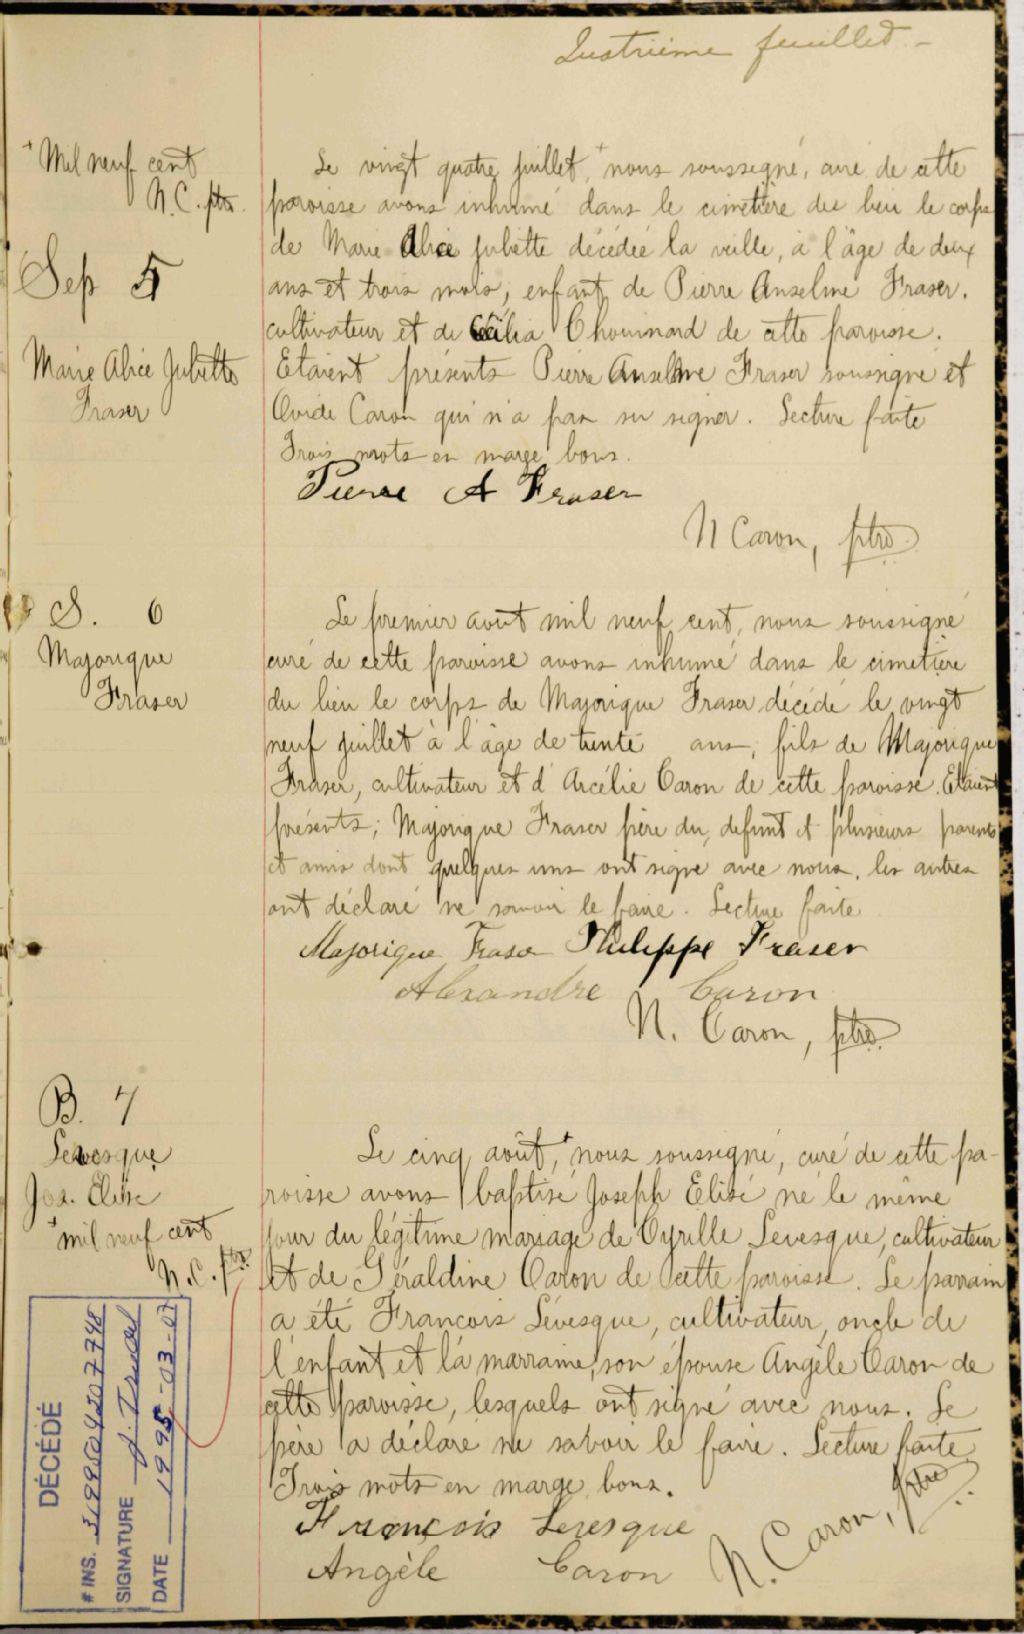 Quatrième feuillet -
+ Mil neuf cent
N.C. ptre.
Sep 5
Marie Alice Juliette
Fraser
Le vingt quatre juillet, + nous soussigné, curé de cette
paroisse avons inhumé dans le cimetière du lieu le corps
de Marie Alice Juliette décédée la veille, à l'âge de deux
ans et trois mois, enfant de Pierre Anselme Fraser,
cultivateur et de Célia Chouinard de cette paroisse.
Etaient présents Pierre Anselme Fraser soussigné et
Ovide Caron qui n'a pas su signer. Lecture faite
Trois mots en marge bons.
Pierre A Fraser
N Caron, ptre
S. 6
Majorique
Fraser
Le premier août mil neuf cent, nous soussigné
curé de cette paroisse avons inhumé dans le cimetière
du lieu le corps de Majorique Fraser décédé le vingt
neuf juillet à l'âge de trente ans, fils de Majorique
Fraser, cultivateur et d'Arcélie Caron de cette paroisse. Etaient
présents; Majorique Fraser père du défunt et plusieurs parents
et amis dont quelques uns ont signé avec nous, les autres
ont déclaré ne savoir le faire. Lecture faite
Majorique Fraser Philippe Fraser
Alexandre Caron
N. Caron, ptre.
B. 7
Levesque
Jos. Elisé
+ mil neuf cent
N.C. ptre
Le cinq août, + nous soussigné, curé de cette pa-
roisse avons baptisé Joseph Elisé né le même
jour du légitime mariage de Cyrille Levesque, cultivateur
et de Géraldine Caron de cette paroisse. Le parrain
a été François Lévesque, cultivateur, oncle de
l'enfant et la marraine, son épouse Angèle Caron de
cette paroisse, lesquels ont signé avec nous. Le
père a déclaré ne savoir le faire. Lecture faite
Trois mots en marge bons.
François Levesque
Angèle Caron
N. Caron, ptre
DÉCÉDÉ
# INS. 3199504207748
SIGNATURE J. Trudel
DATE 1995-03-07